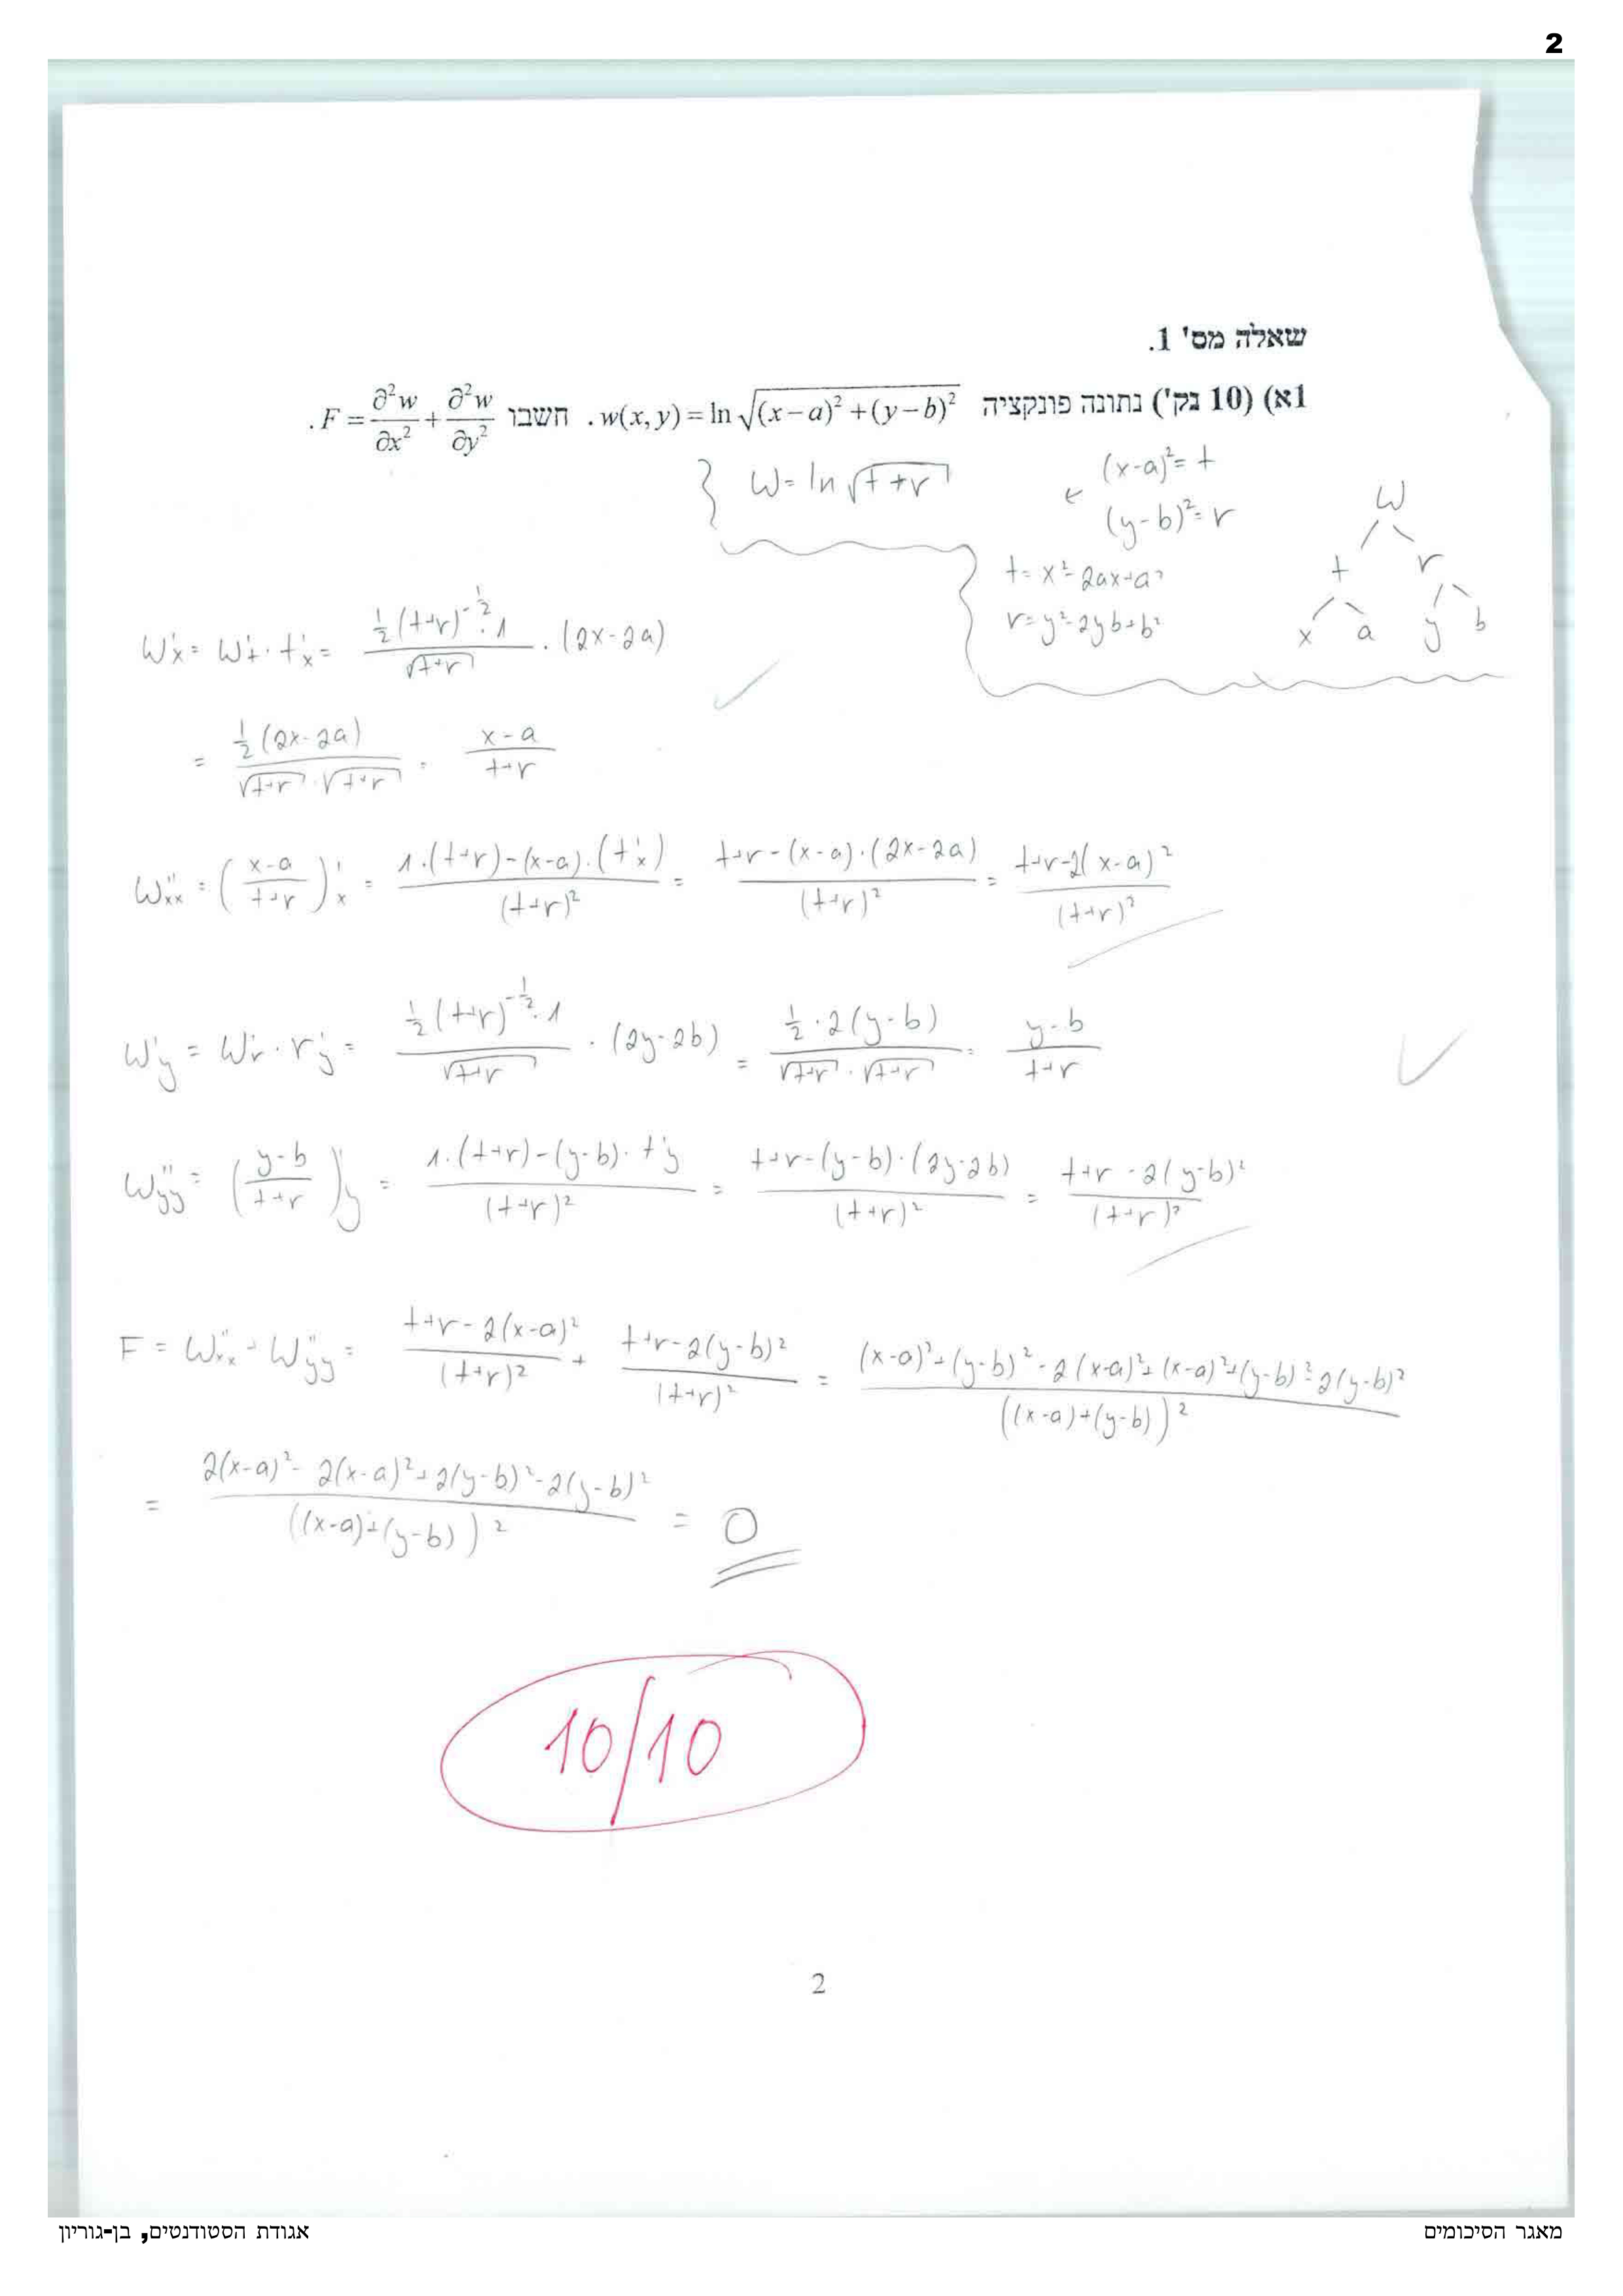 2
שאלה מס' 1.
1א) (10 נק') נתונה פונקציה w(x, y) = ln √((x−a)² + (y−b)²) . חשבו F = ∂²w/∂x² + ∂²w/∂y² .
w = ln √(t+r)
(x-a)² = t
(y-b)² = r
w
t r
x a y b
t = x² - 2ax + a²
r = y² - 2yb + b²
w'x = w't · t'x = (½(t+r)^(-½) · 1)/√(t+r) · (2x-2a)
= ½(2x-2a)/(√(t+r) · √(t+r)) = (x-a)/(t+r)
w''xx = ((x-a)/(t+r))'x = (1·(t+r) - (x-a)·(t'x))/(t+r)² = (t+r - (x-a)·(2x-2a))/(t+r)² = (t+r-2(x-a)²)/(t+r)²
w'y = w'r · r'y = (½(t+r)^(-½) · 1)/√(t+r) · (2y-2b) = (½·2(y-b))/(√(t+r) · √(t+r)) = (y-b)/(t+r)
w''yy = ((y-b)/(t+r))'y = (1·(t+r) - (y-b)·t'y)/(t+r)² = (t+r-(y-b)·(2y-2b))/(t+r)² = (t+r-2(y-b)²)/(t+r)²
F = w''xx + w''yy = (t+r-2(x-a)²)/(t+r)² + (t+r-2(y-b)²)/(t+r)² = ((x-a)²+(y-b)²-2(x-a)²+(x-a)²+(y-b)²-2(y-b)²)/((x-a)+(y-b))²
= (2(x-a)²-2(x-a)²+2(y-b)²-2(y-b)²)/((x-a)+(y-b))² = 0
10/10
2
מאגר הסיכומים
אגודת הסטודנטים, בן-גוריון